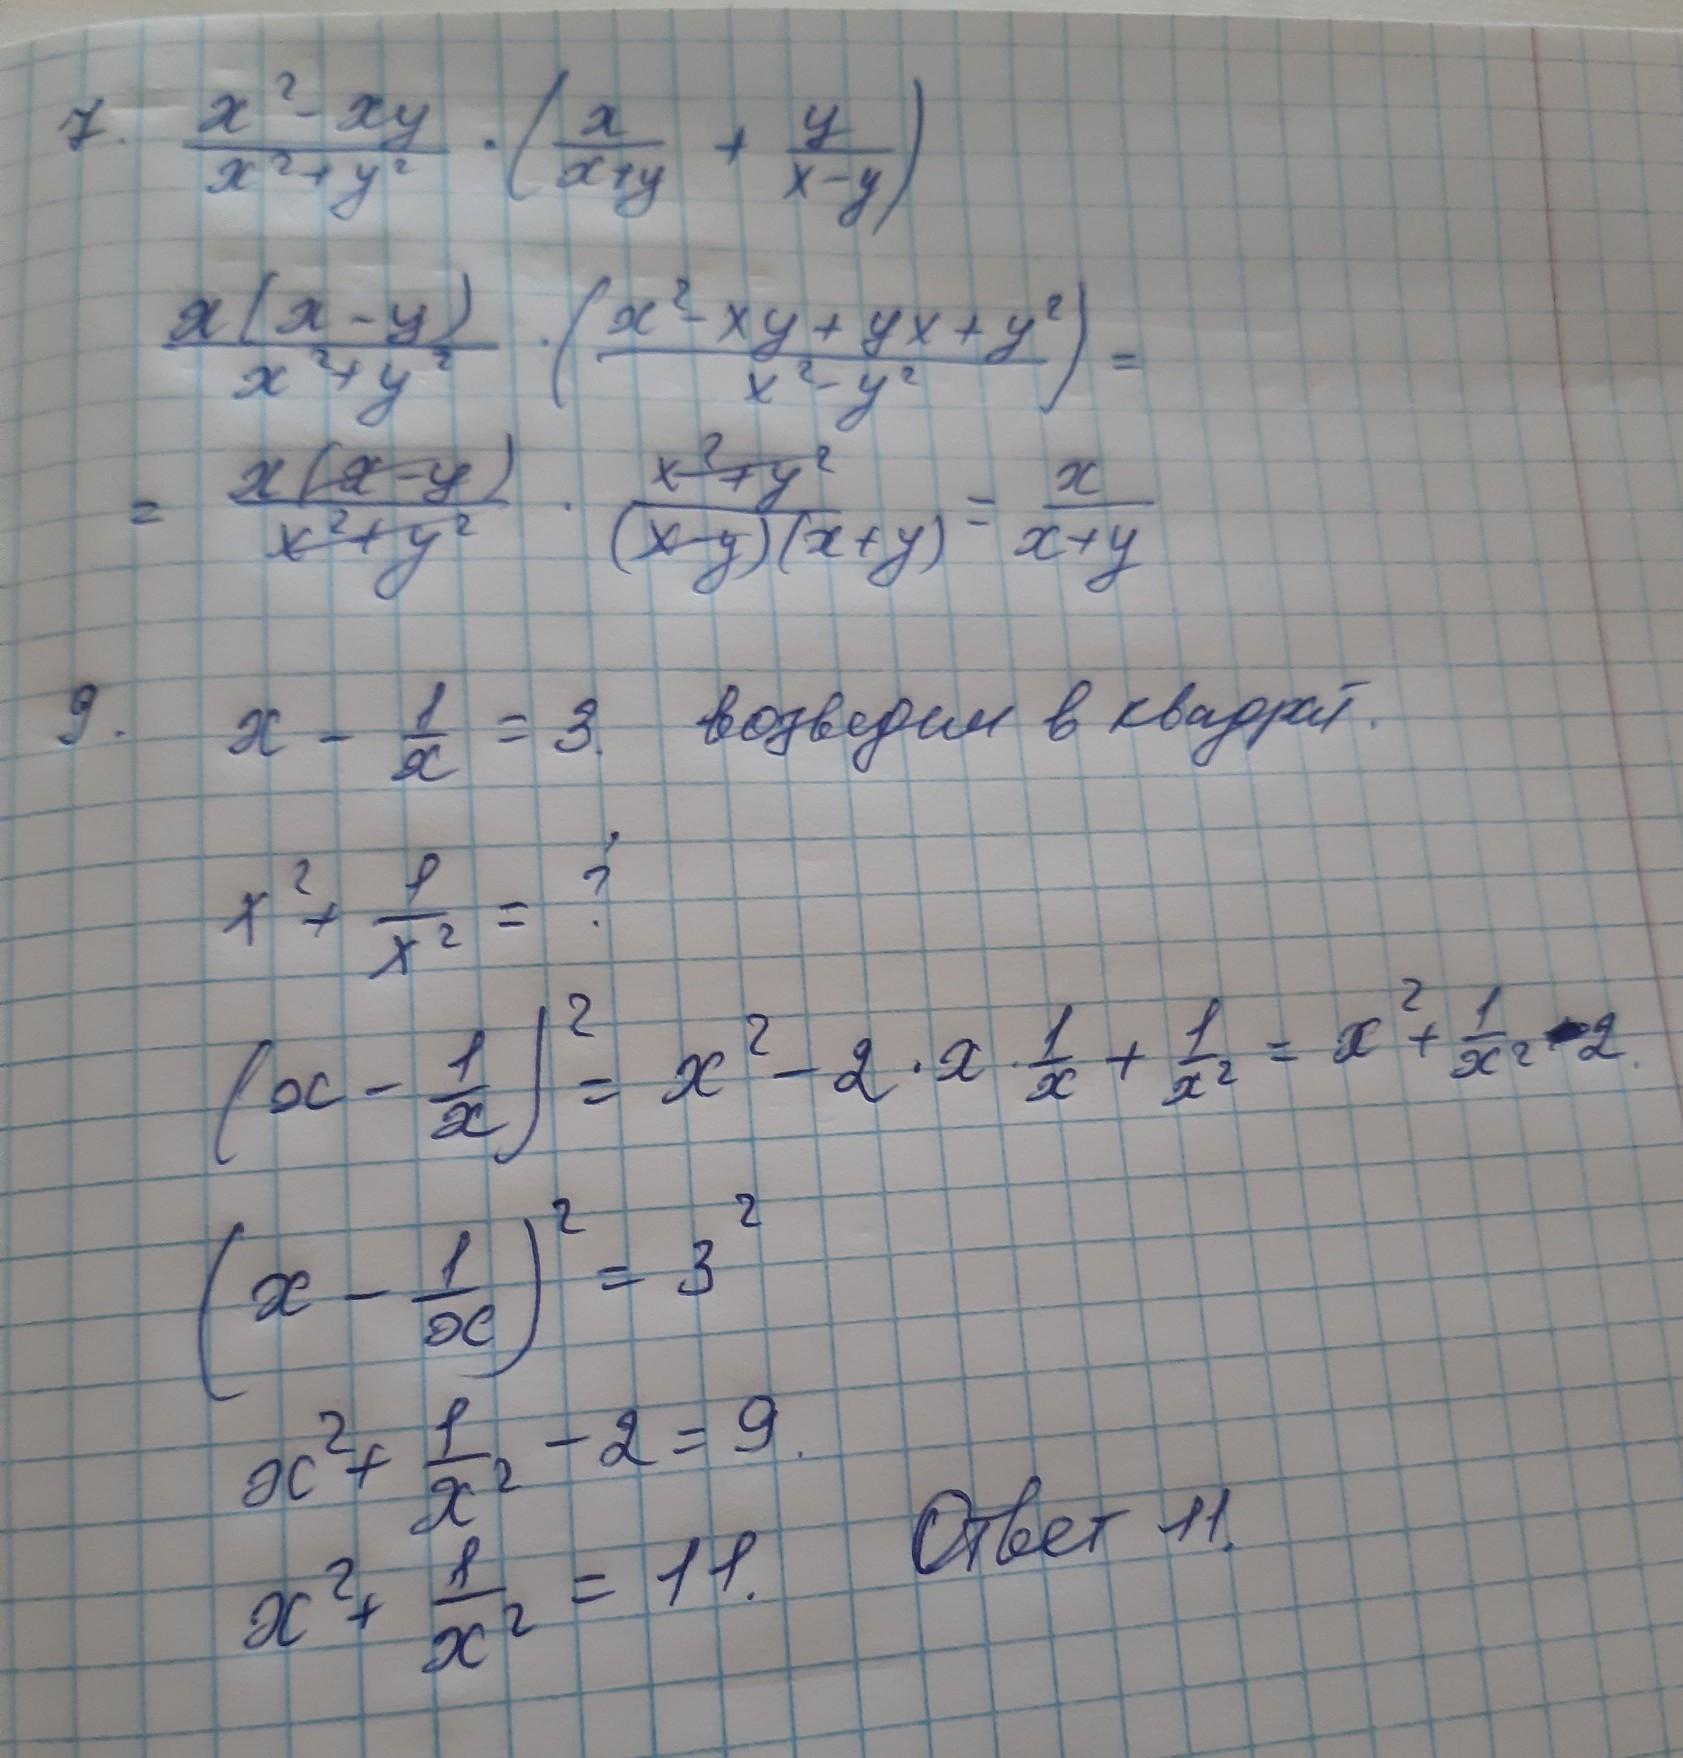 7. (x² - xy)/(x² + y²) · (x/(x+y) + y/(x-y))
x(x-y)/(x²+y²) · ((x² - xy + yx + y²)/(x² - y²)) =
= x(x-y)/(x²+y²) · (x²+y²)/((x-y)(x+y)) = x/(x+y)
9. x - 1/x = 3. возведем в квадрат.
x² + 1/x² = ?
(x - 1/x)² = x² - 2 · x · 1/x + 1/x² = x² + 1/x² - 2.
(x - 1/x)² = 3²
x² + 1/x² - 2 = 9.
x² + 1/x² = 11. Ответ 11.